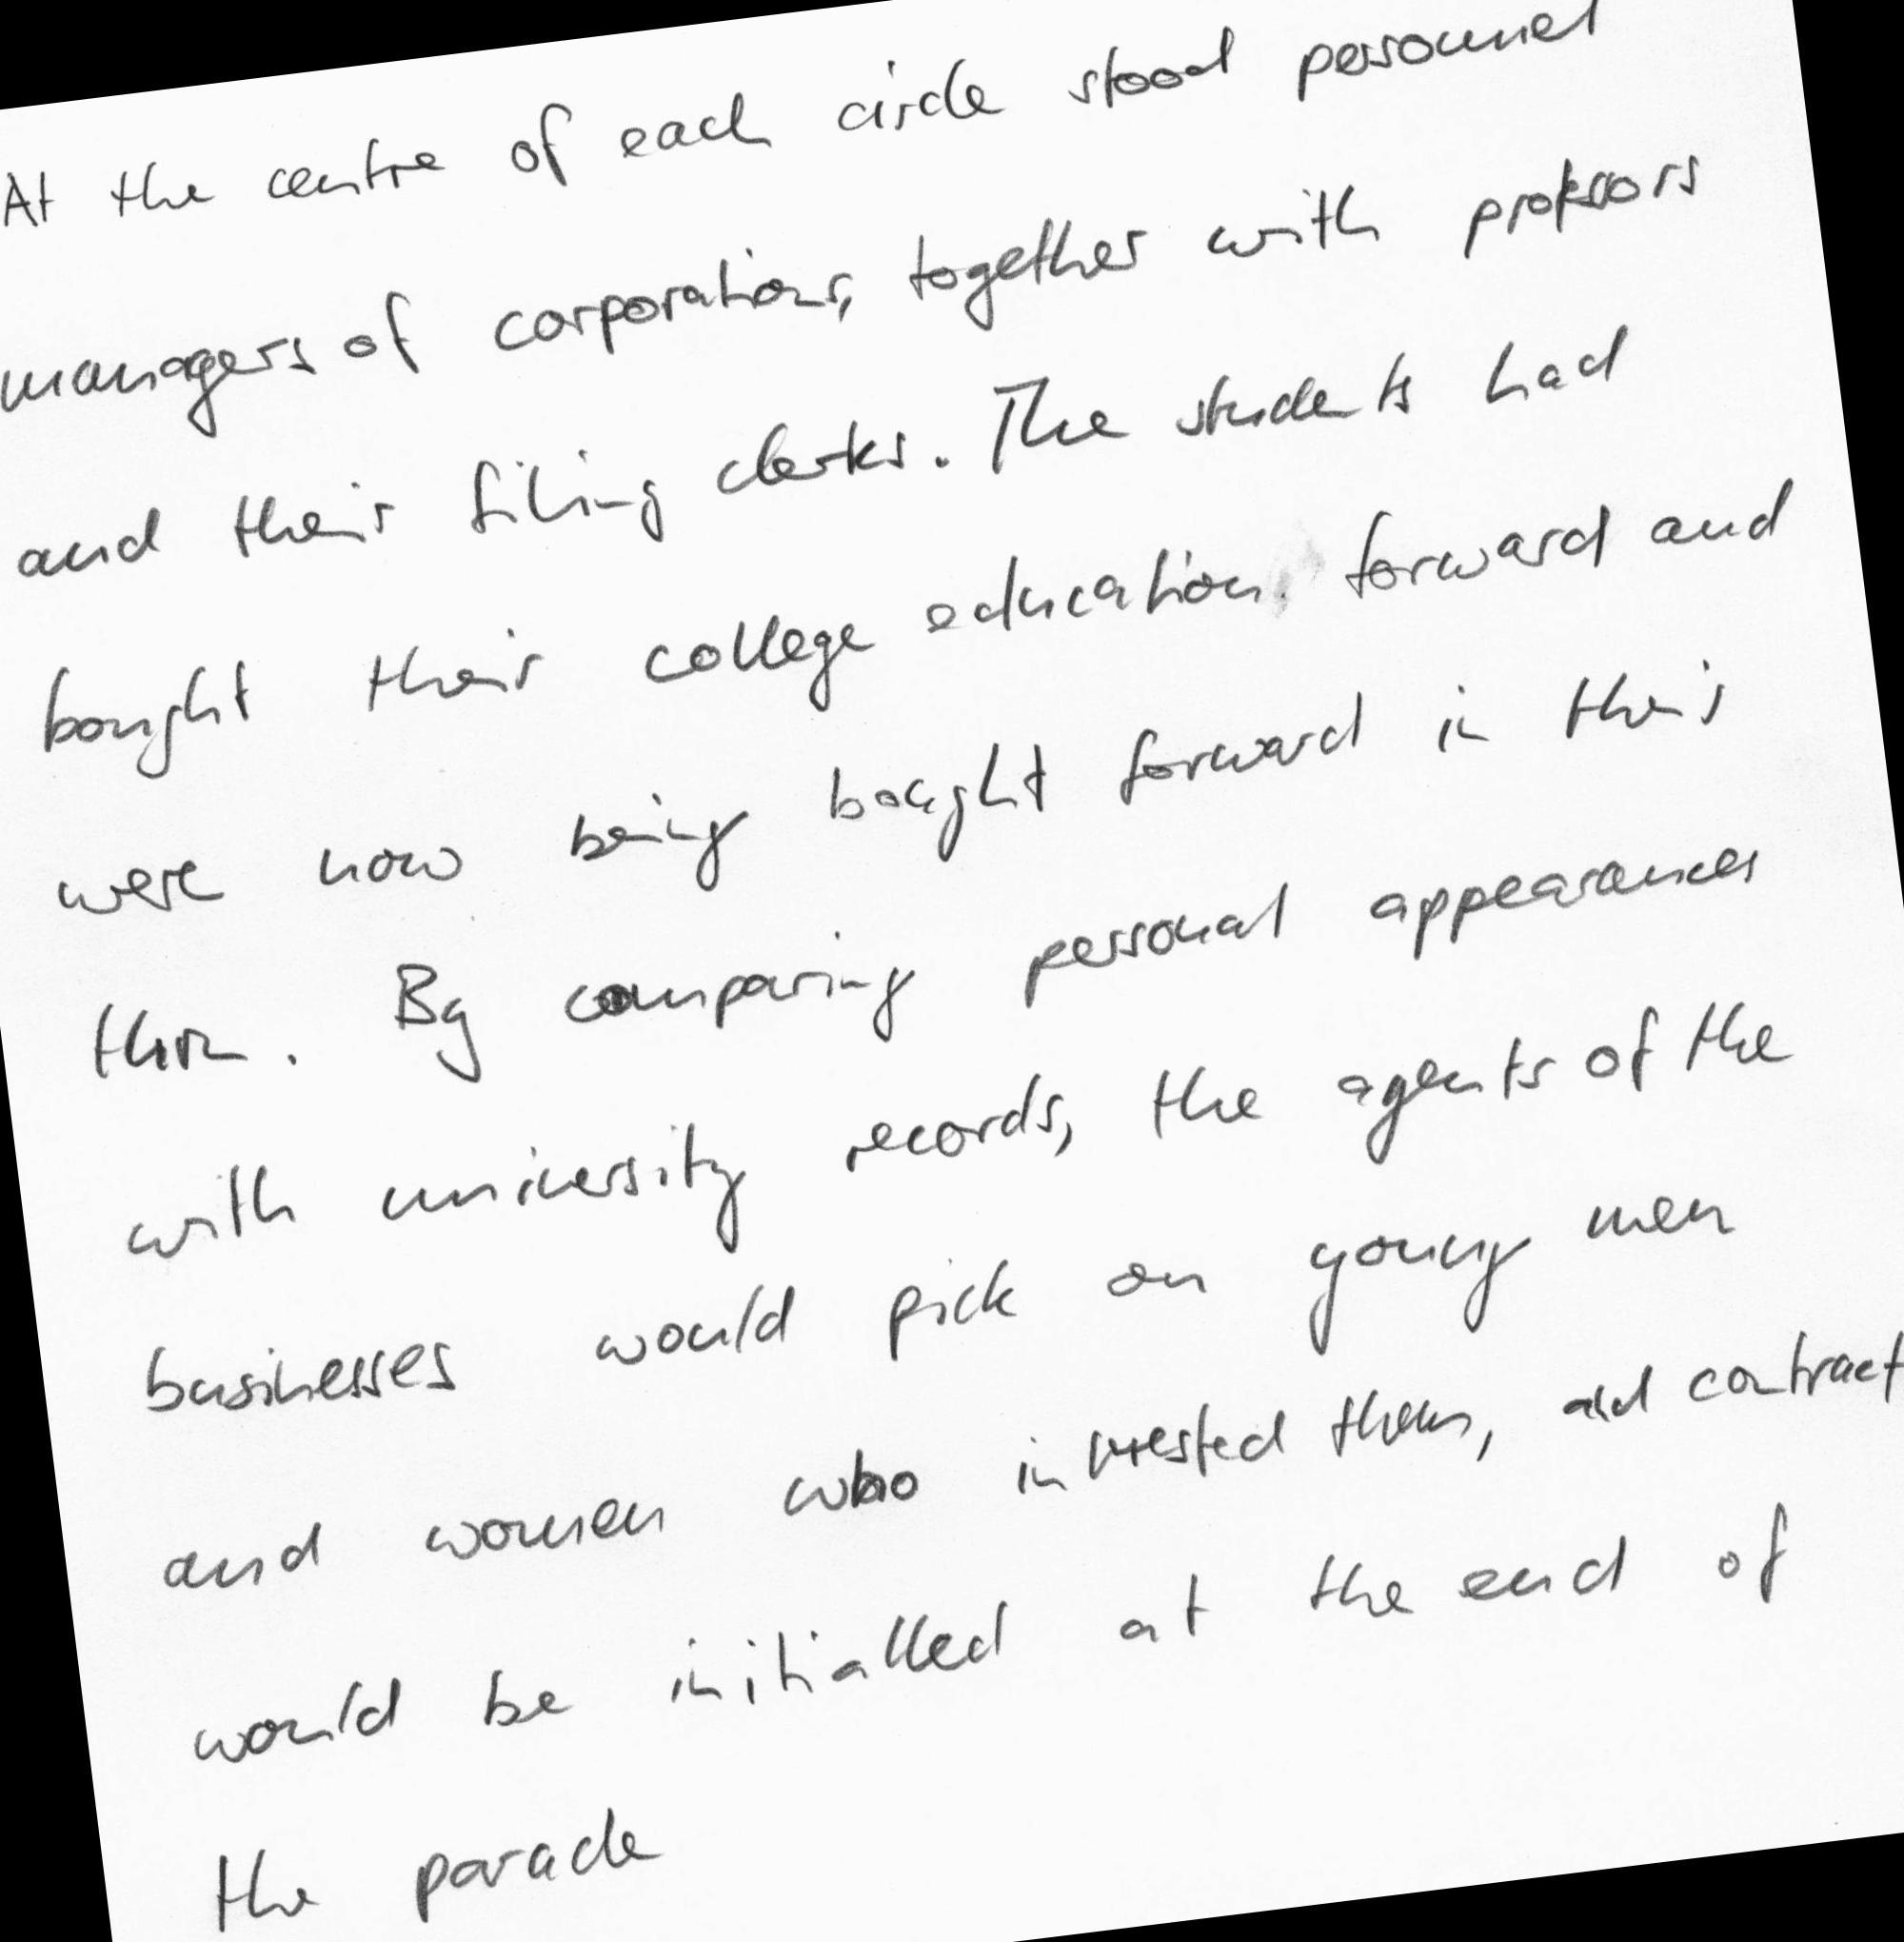 At the centre of each circle stood personnel
managers of corporations, together with professors
and their filing clerks. The students had
bought their college education forward and
were now being bought forward in their
turn. By comparing personal appearances
with university records, the agents of the
businesses would pick on young men
and women who interested them, and contract
would be initialled at the end of
the parade